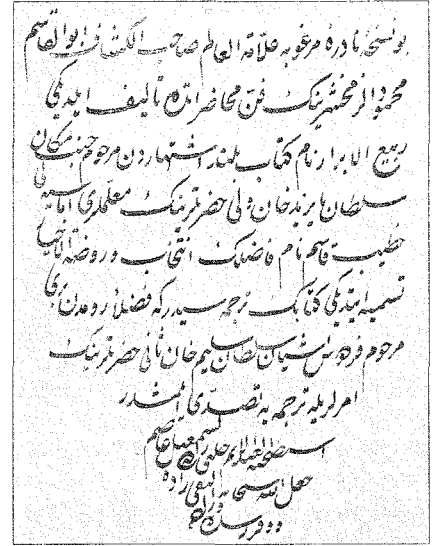 بو نسخهٔ نادرهٔ مرغوبه علامة العالم صاحب الكشاف ابو القاسم
محمود الزمخشرينك فن محاضراتده تأليف ايلديكى
ربيع الابرار نام كتاب بلند اشتهاردن مرحوم جنت مكان
سلطان بايزيد خان ولى حضرتلرينك معلملرى اماسيه لى
خطيب قاسم نام فاضلك انتخاب و روضة الاخيار
تسميه ايتديكى كتابك ترجمه سيدركه فضلاء رومدن برى
مرحوم فردوس آشيان سلطان سليم خان ثانى حضرتلرينك
امرلريله ترجمه يه تصدى ايتمشدر
اسماعيل عاصم
جعل الله سبحانه زاده